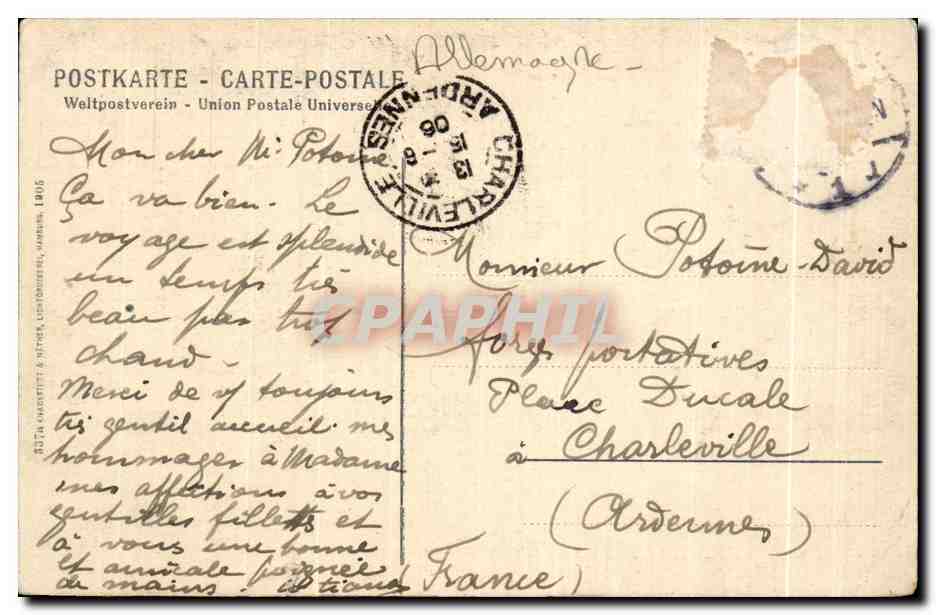 Allemagne
POSTKARTE - CARTE-POSTALE
Weltpostverein - Union Postale Universelle
CHARLEVILLE
ARDENNES
06
Mon cher Mr Potoine
Ça va bien. Le
voyage est splendide
un temps très
beau pas trop
chaud -
Merci de vs toujours
très gentil accueil. mes
hommages à Madame
mes affections à vos
gentilles fillettes et
à vous une bonne
et amicale poignée
de mains.
Monsieur Potoine-David
forges portatives
Place Ducale
à Charleville
(Ardennes)
(France)
KNACKSTEDT & NÄTHER, LICHTDRUCKEREI, HAMBURG. 1905
CPAPHIL